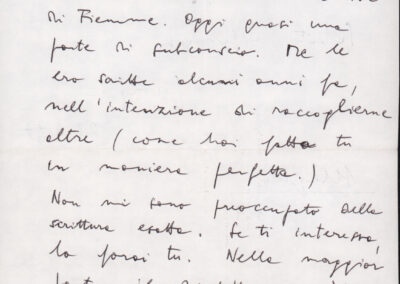 di Fiemme. Oggi quasi una
fonte di subconscio. Me le
ero scritte alcuni anni fa,
nell'intenzione di raccoglierne
altre (come hai fatto tu
in maniera perfetta.)
Non mi sono preoccupato della
scrittura esatta. Se ti interessa,
lo farai tu. Nella maggior